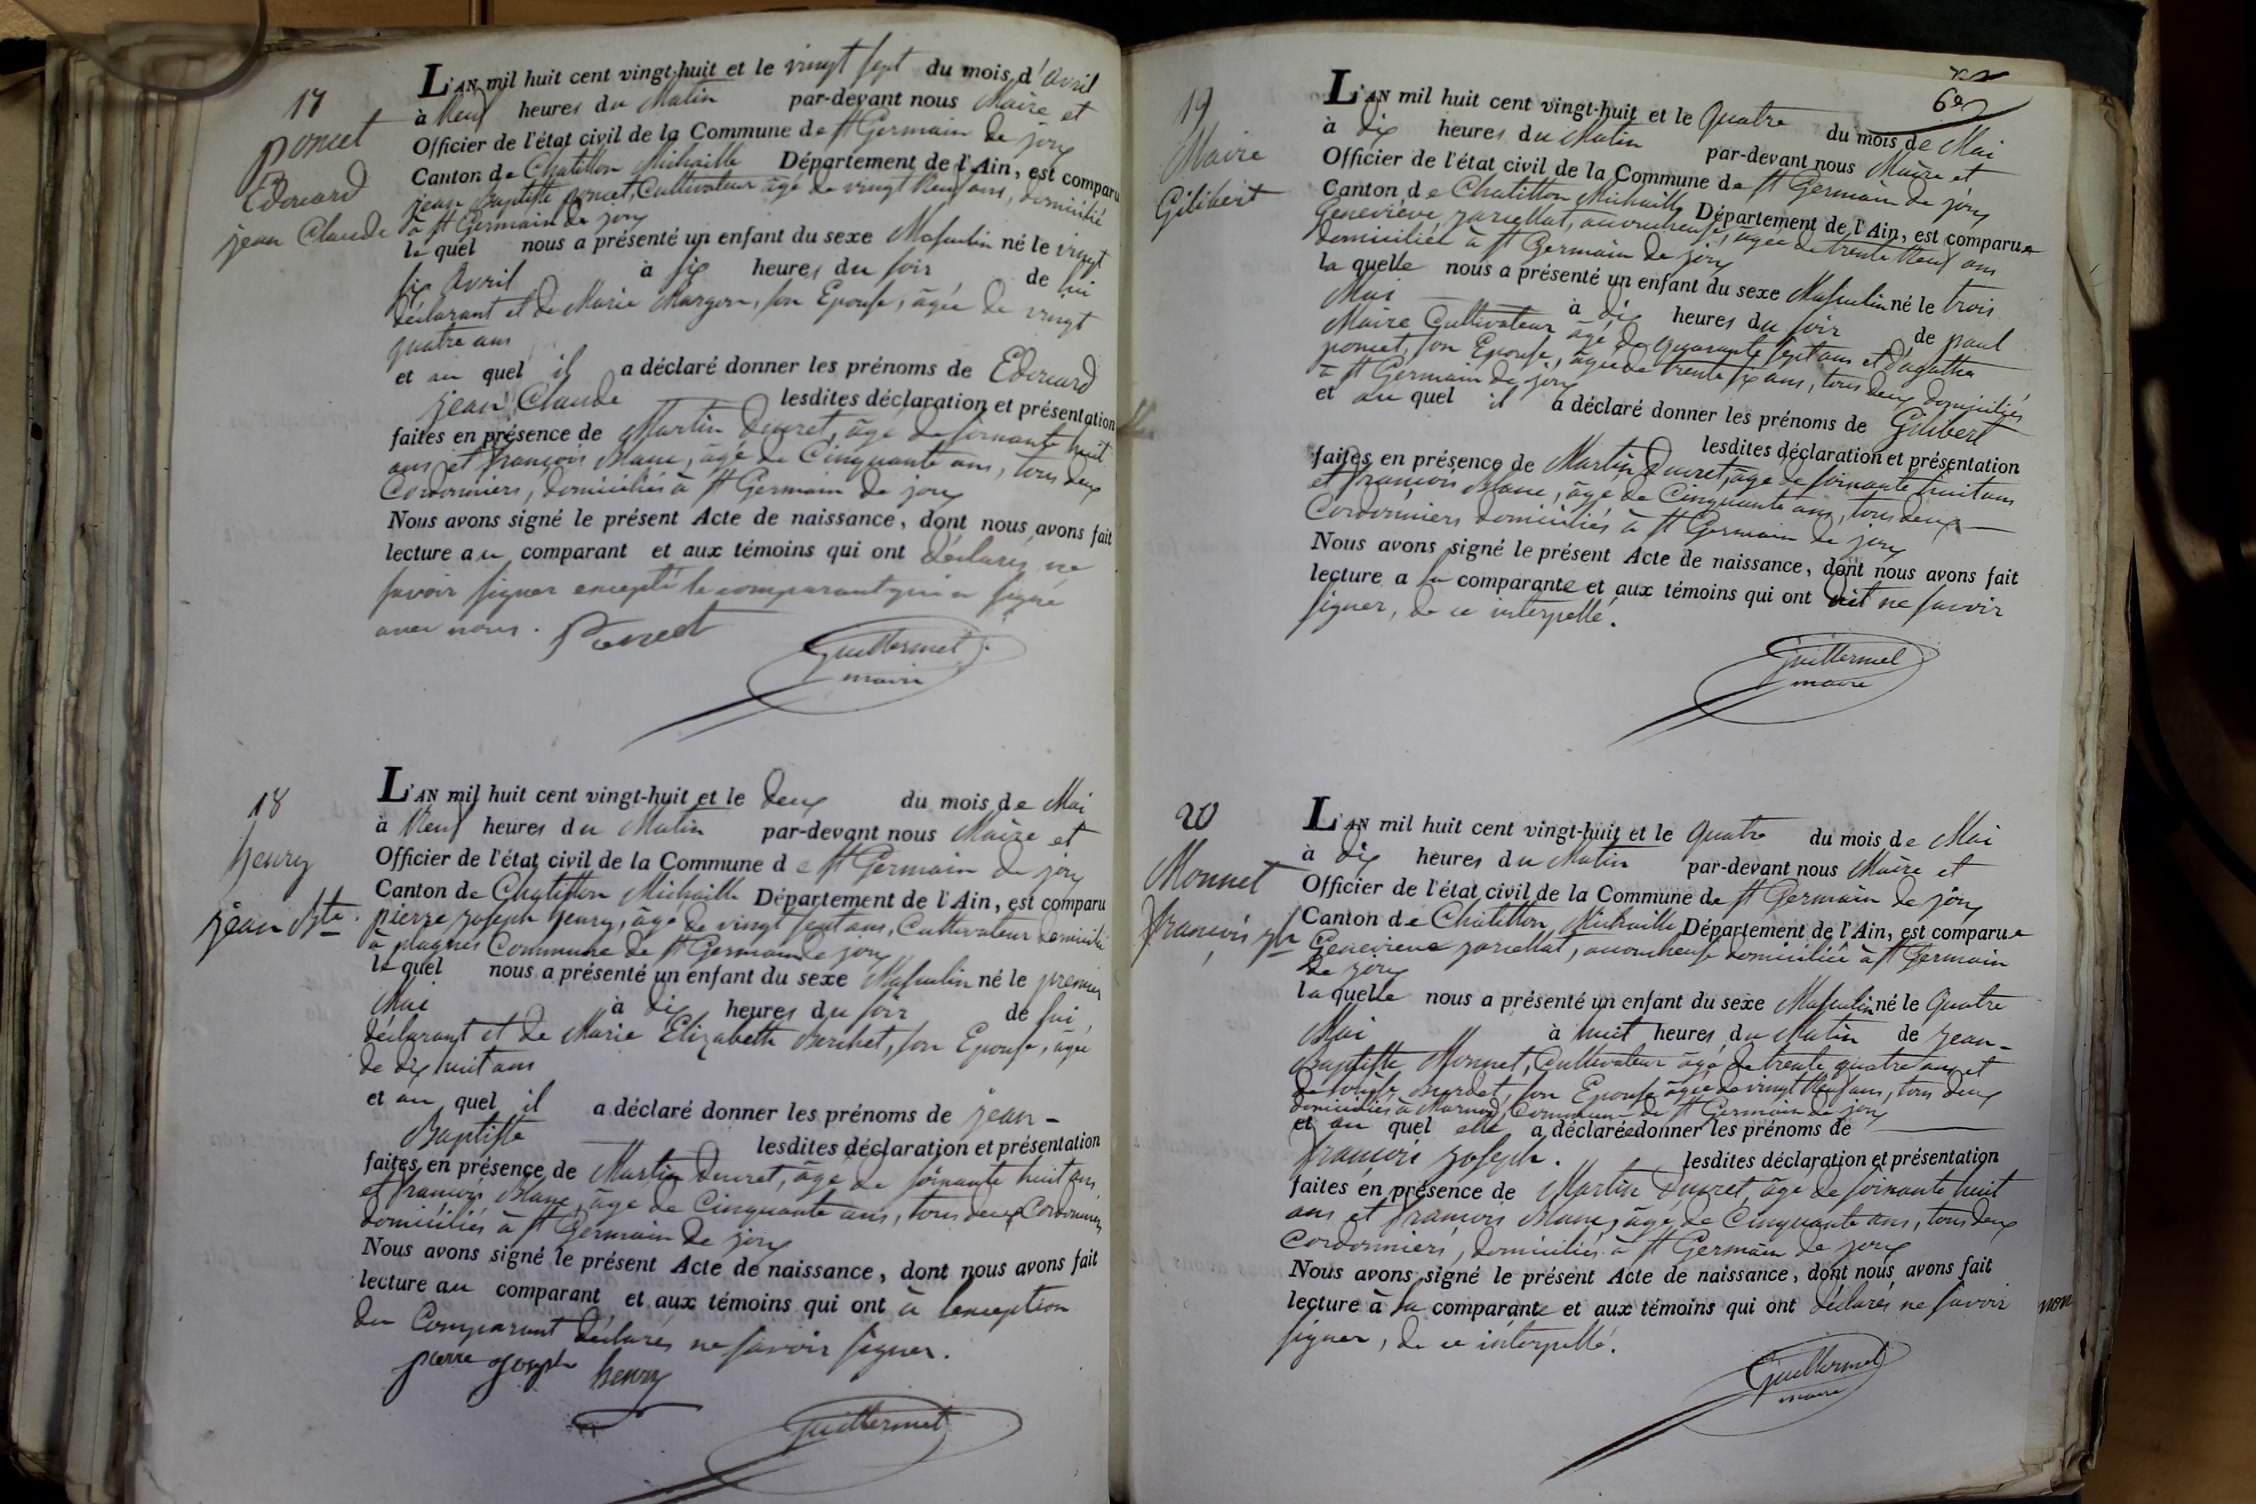 17
poncet
Edouard
jean Claude
L'AN mil huit cent vingt-huit et le vingt sept du mois d'avril
à Neuf heures du Matin par-devant nous Maire et
Officier de l'état civil de la Commune de St Germain de joux
Canton de Chatillon Michaille Département de l'Ain, est comparu
jean Baptiste poncet, Cultivateur âgé de vingt Neuf ans, domicilié
à St Germain de joux
le quel nous a présenté un enfant du sexe Masculin né le vingt
six avril à six heures du soir de lui
déclarant et de Marie Margon, son Epouse, âgée de vingt
quatre ans
et au quel il a déclaré donner les prénoms de Edouard
jean Claude lesdites déclaration et présentation
faites en présence de Martin Ducret, âgé de soixante huit
ans et françois Blanc, âgé de Cinquante ans, tous deux
Cordonniers, domiciliés à St Germain de joux
Nous avons signé le présent Acte de naissance, dont nous avons fait
lecture au comparant et aux témoins qui ont déclarés ne
savoir signer excepté le comparant qui a signé
avec nous. Poncet
Guillermet
maire
18
henry
jean Bte
L'AN mil huit cent vingt-huit et le deux du mois de Mai
à Neuf heures du Matin par-devant nous Maire et
Officier de l'état civil de la Commune de St Germain de joux
Canton de Chatillon Michaille Département de l'Ain, est comparu
pierre joseph henry, âgé de vingt sept ans, Cultivateur domicilié
à plagnes Commune de St Germain de joux
le quel nous a présenté un enfant du sexe Masculin né le premier
Mai à dix heures du soir de lui,
déclarant et de Marie Elizabeth Berthet, son Epouse, âgée
de dix huit ans
et au quel il a déclaré donner les prénoms de jean-
Baptiste lesdites déclaration et présentation
faites en présence de Martin Ducret, âgé de soixante huit ans
et françois Blanc, âgé de Cinquante ans, tous deux Cordonniers,
domiciliés à St Germain de joux
Nous avons signé le présent Acte de naissance, dont nous avons fait
lecture au comparant et aux témoins qui ont à l'exception
du Comparant déclarés ne savoir signer.
pierre joseph henry
Guillermet
60
19
Maire
Gilibert
L'AN mil huit cent vingt-huit et le Quatre du mois de Mai
à dix heures du Matin par-devant nous Maire et
Officier de l'état civil de la Commune de St Germain de joux
Canton de Chatillon Michaille Département de l'Ain, est comparue
Geneviève jarcellat, accoucheuse, âgée de trente Neuf ans
domiciliée à St Germain de joux
la quelle nous a présenté un enfant du sexe Masculin né le trois
Mai à dix heures du soir de paul
Maire Cultivateur âgé de quarante sept ans et d'agathe
poncet, son Epouse, âgée de trente six ans, tous deux domiciliés
à St Germain de joux
et au quel il a déclaré donner les prénoms de Gilibert
lesdites déclaration et présentation
faites en présence de Martin Ducret, âgé de soixante huit ans
et françois Blanc, âgé de Cinquante ans, tous deux
Cordonniers domiciliés à St Germain de joux
Nous avons signé le présent Acte de naissance, dont nous avons fait
lecture a la comparante et aux témoins qui ont dit ne savoir
signer, de ce interpellé.
Guillermet
maire
20
Monnet
françois jh
L'AN mil huit cent vingt-huit et le Quatre du mois de Mai
à dix heures du Matin par-devant nous Maire et
Officier de l'état civil de la Commune de St Germain de joux
Canton de Chatillon Michaille Département de l'Ain, est comparue
Genevieve jarcellat, accoucheuse domiciliée à St Germain
de joux
la quelle nous a présenté un enfant du sexe Masculin né le Quatre
Mai à huit heures du Matin de jean-
Baptiste Monnet, Cultivateur âgé de trente quatre ans et
de louise Burdet, son Epouse âgée de vingt Neuf ans, tous deux
domiciliés à Marnod, Commune de St Germain de joux
et au quel elle a déclarée donner les prénoms de
françois joseph. lesdites déclaration et présentation
faites en présence de Martin Ducret, âgé de soixante huit
ans et françois Blanc, âgé de Cinquante ans, tous deux
Cordonniers, domiciliés à St Germain de joux
Nous avons signé le présent Acte de naissance, dont nous avons fait
lecture à la comparante et aux témoins qui ont déclarés ne savoir
signer, de ce interpellé.
Guillermet
maire